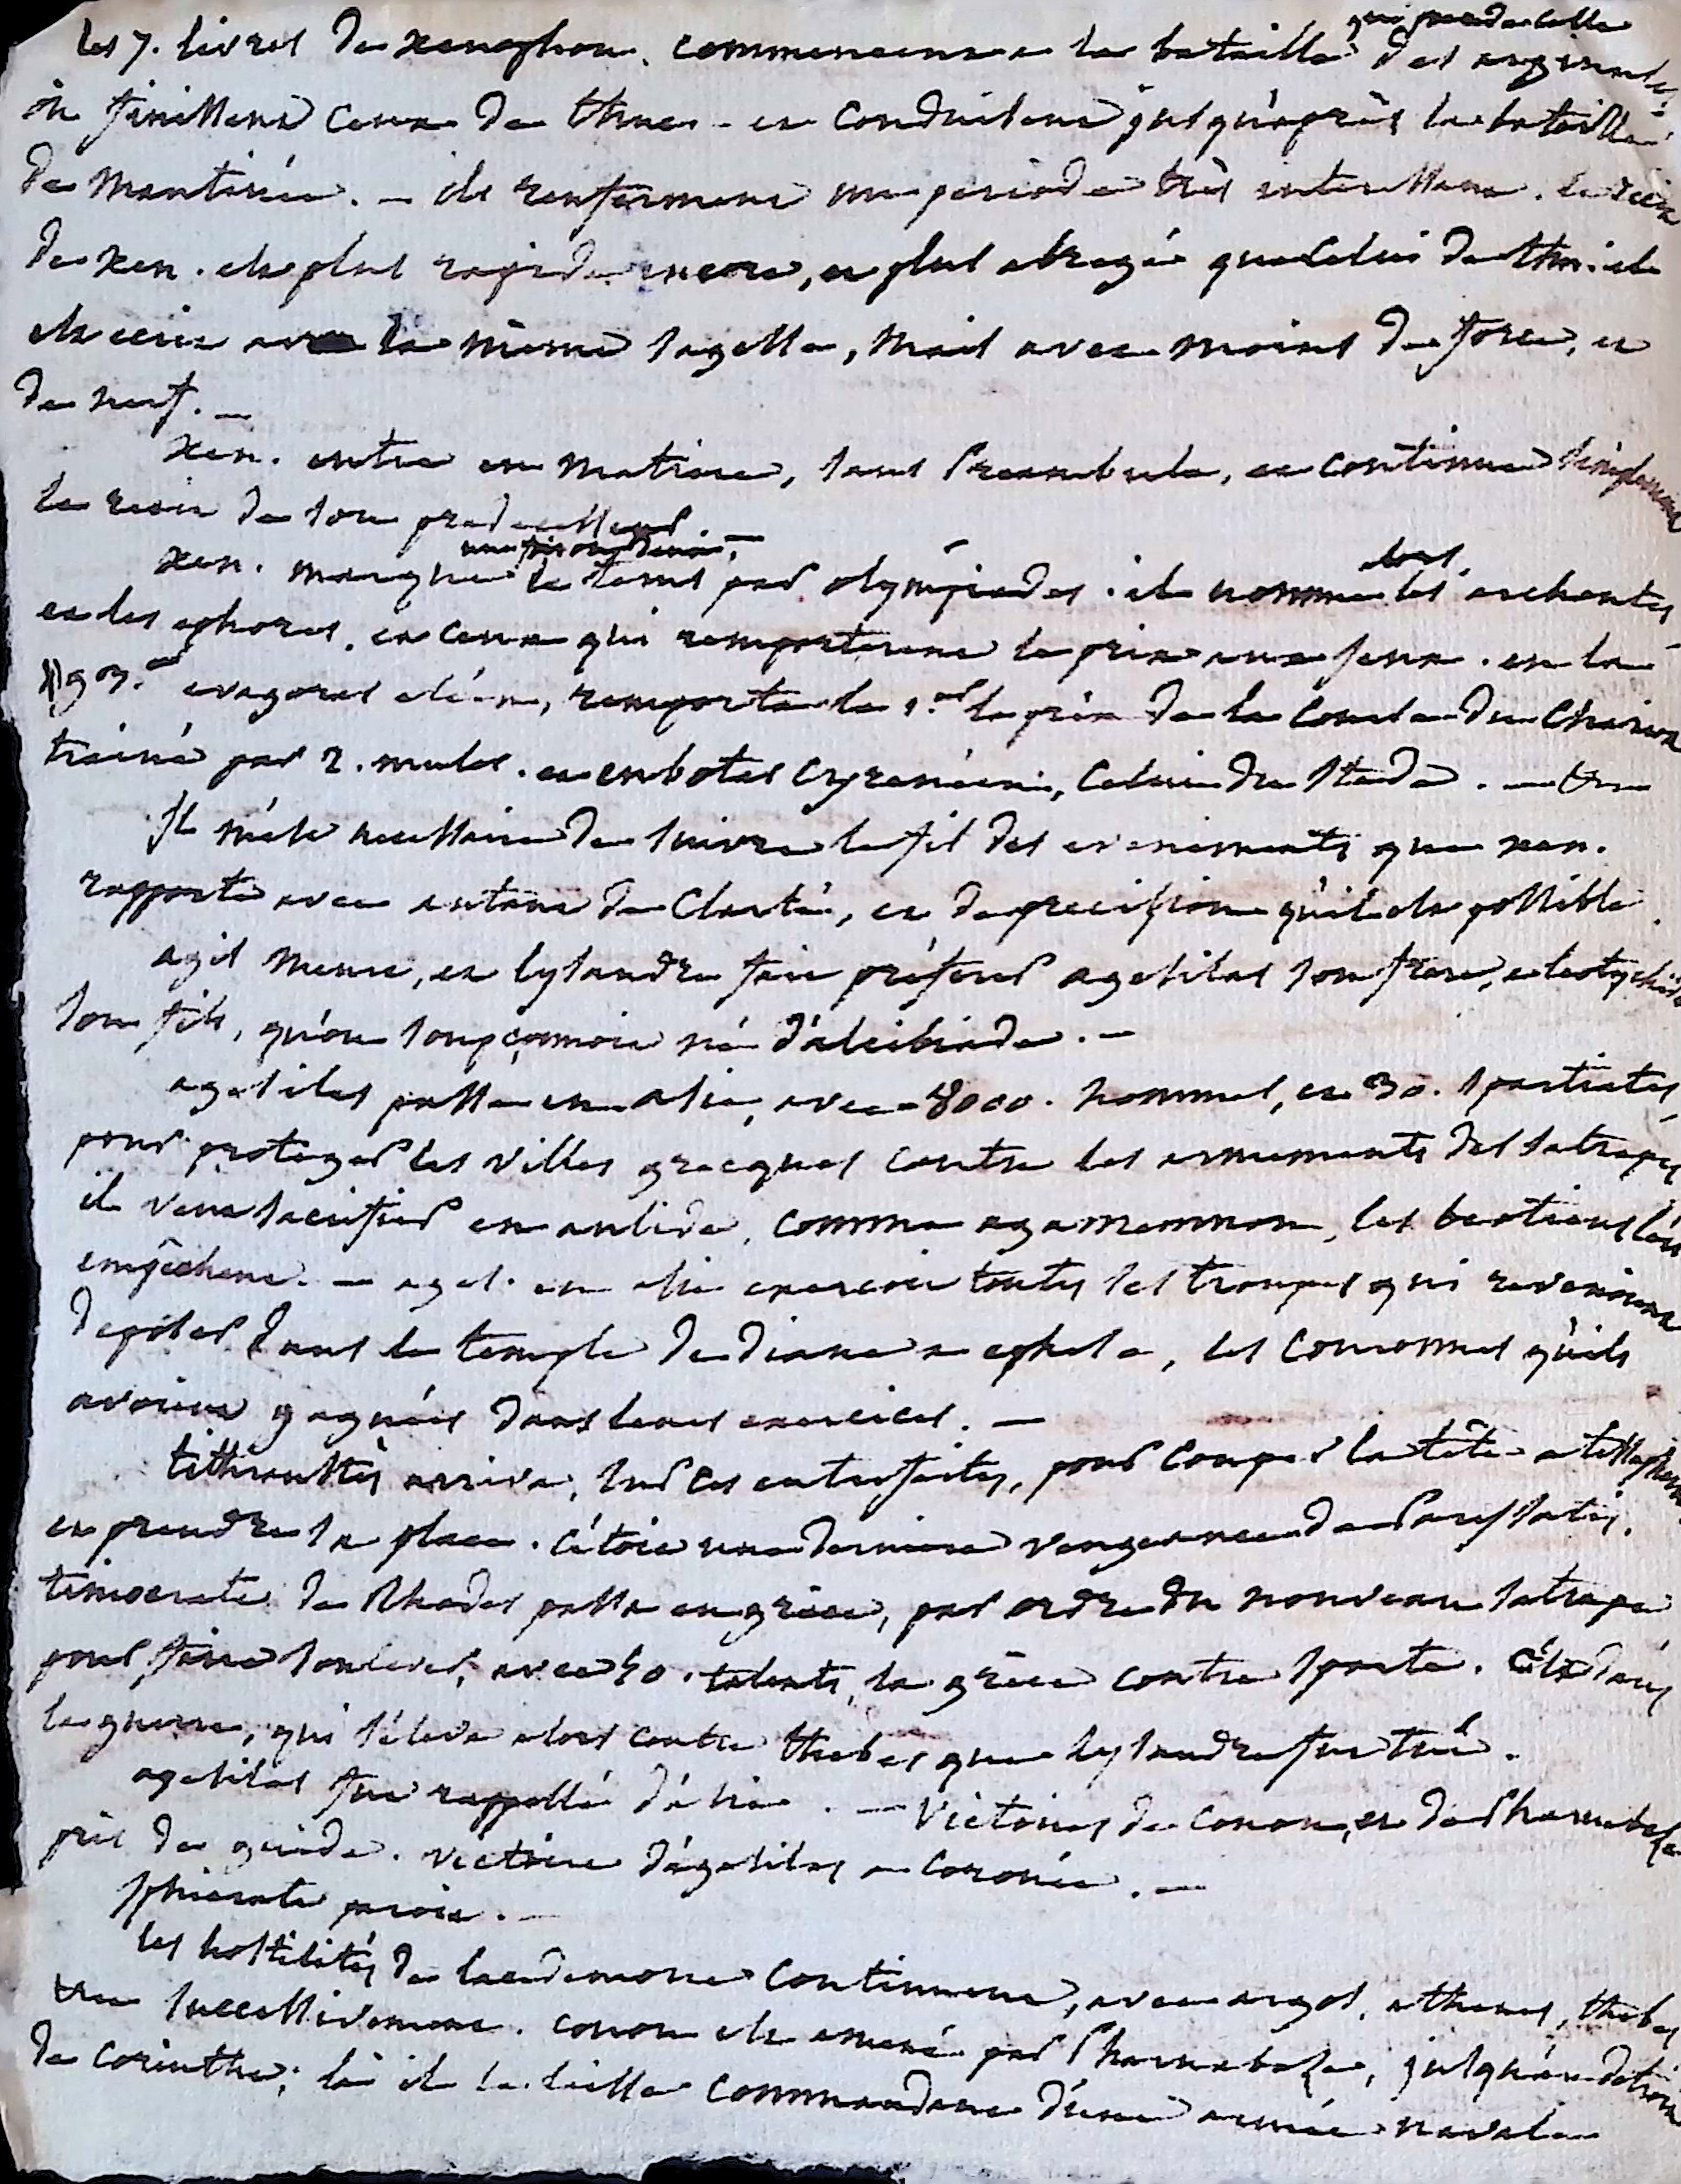 qui precede celle
les 7. livres de xenophon. commencent a la bataille des arginuses
ou finissent ceux de thuc. et conduisent jusqu'après la bataille
de Mantinée. — ils renferment une periode très interessante. le recit
de xen. est plus rapide encore, et plus abregé que celui de thu. il
est ecrit avec la même sagesse, mais avec moins de force, et
de nerf. —
xen. entre en matiere, sans Preambule, et continue simplement
le recit de son predecesseur —
xen. marque le tems par olympiades. il nomme les archontes
et les ephores. et ceux qui remporterent le prix aux jeux. en la
93.e evagoras eléen, remporta le 1.er le prix de la course du chariot
trainé par 2. mules. et eubotas cyrenéen, celui du stade. —
Il m'est necessaire de suivre le fil des evenements que xen.
rapporte avec autant de clarté, et de precision qu'il est possible.
agis meurt, et lysandre fait préferer agesilas son frere, a leotychide
son fils, qu'on soupçonnoit né d'alcibiade. —
agesilas passe en asie, avec 8000. hommes, et 30. spartiates,
pour proteger les villes grecques contre les armements des satrapes
il veut sacrifier en aulide, comme agamemnon, les beotiens l'en
empêchent. — ages. en asie exercoit toutes ses troupes qui revenoient
deposer dans le temple de diane a ephese, les couronnes qu'ils
avoient gagnées dans leurs exercices. —
tithraustes arriva, sur ces entrefaites, pour couper la tête a tissapherne
et prendre sa place. c'étoit une derniere vengeance de Parysatis.
timocrate de Rhodes passa en grèce, par ordre du nouveau satrape
pour faire soulever, avec 50. talents, la grèce contre sparte. c'est dans
la guerre, qui s'éleva alors contre thebes que lysandre fut tué.
agesilas fut rappellé d'asie. — victoires de conon, et de Pharnabaze
près de gnide. victoire d'agesilas a coronée. —
Iphicrate paroit. —
les hostilités de lacedemone continuent, avec argos, athenes, thebes
successivement. conon est amené par Pharnabaze, jusqu'au detroit
de corinthe; là il le laisse commandant d'une armée navale